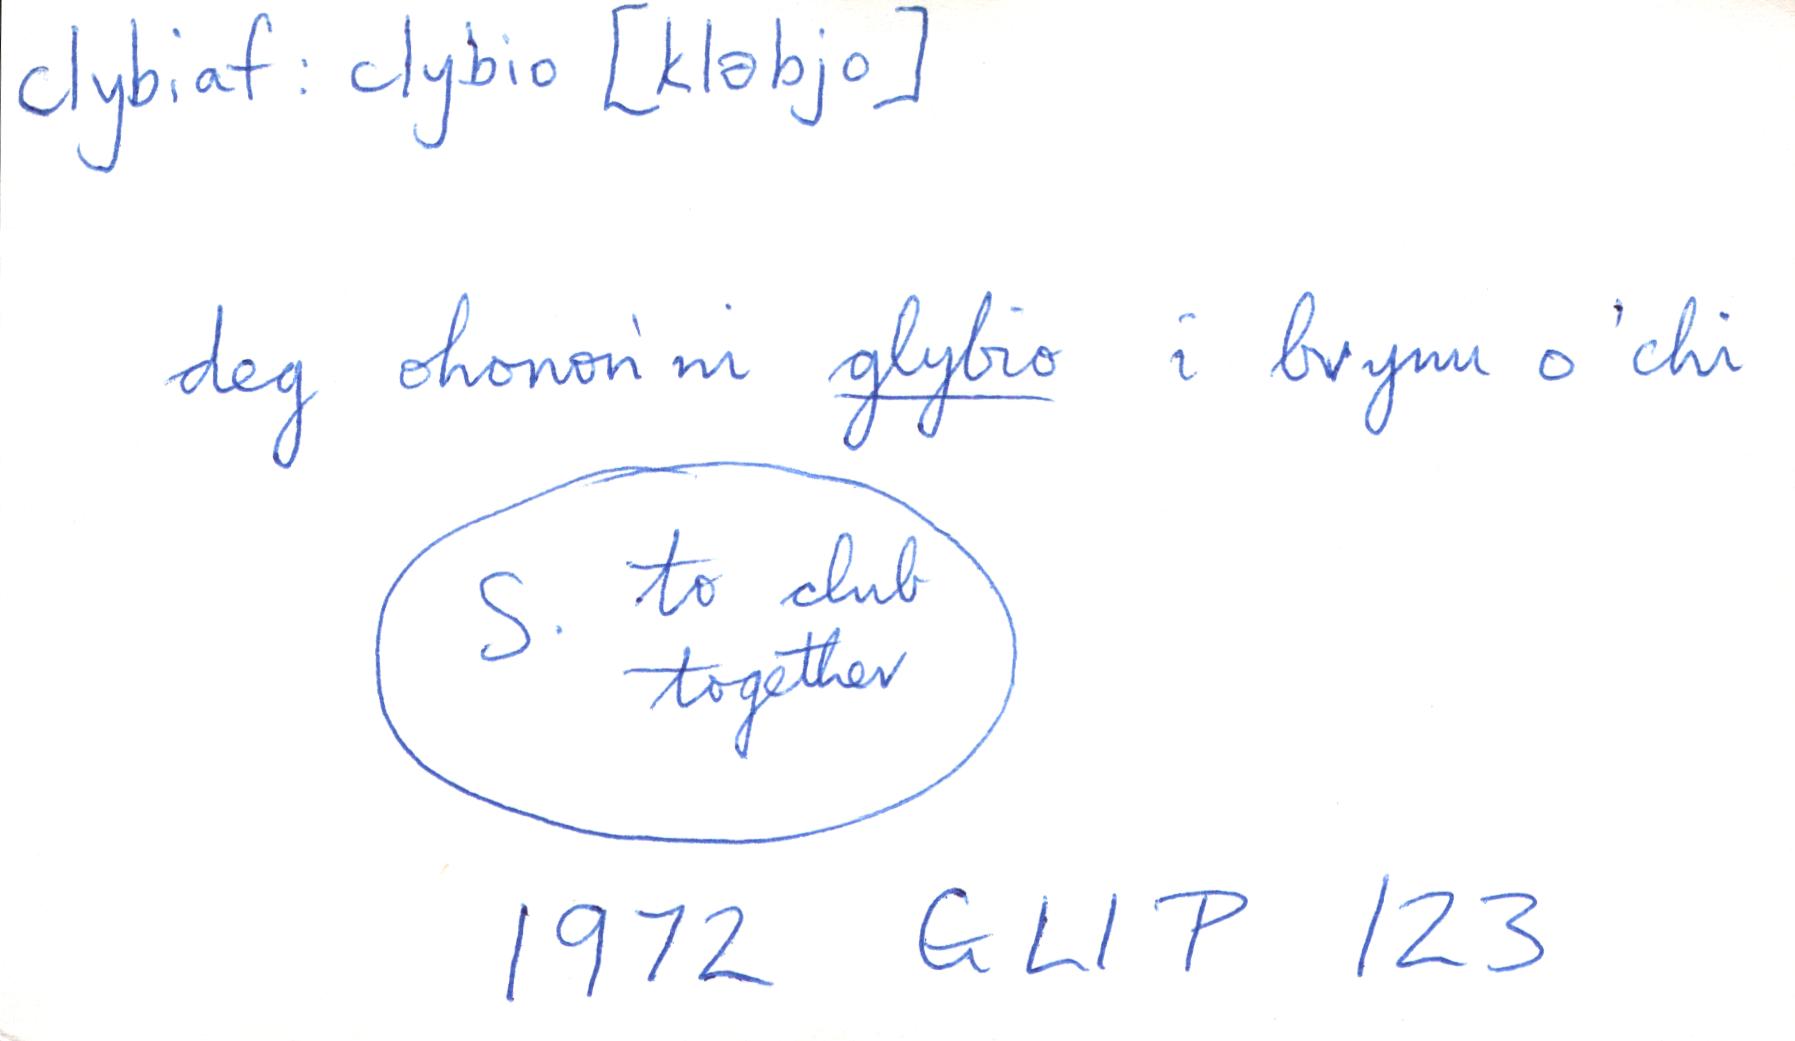 clybiaf: clybio [kləbjo]
deg ohonon' ni glybio i brynu o 'chi
S. to club
together
1972 GLlP 123